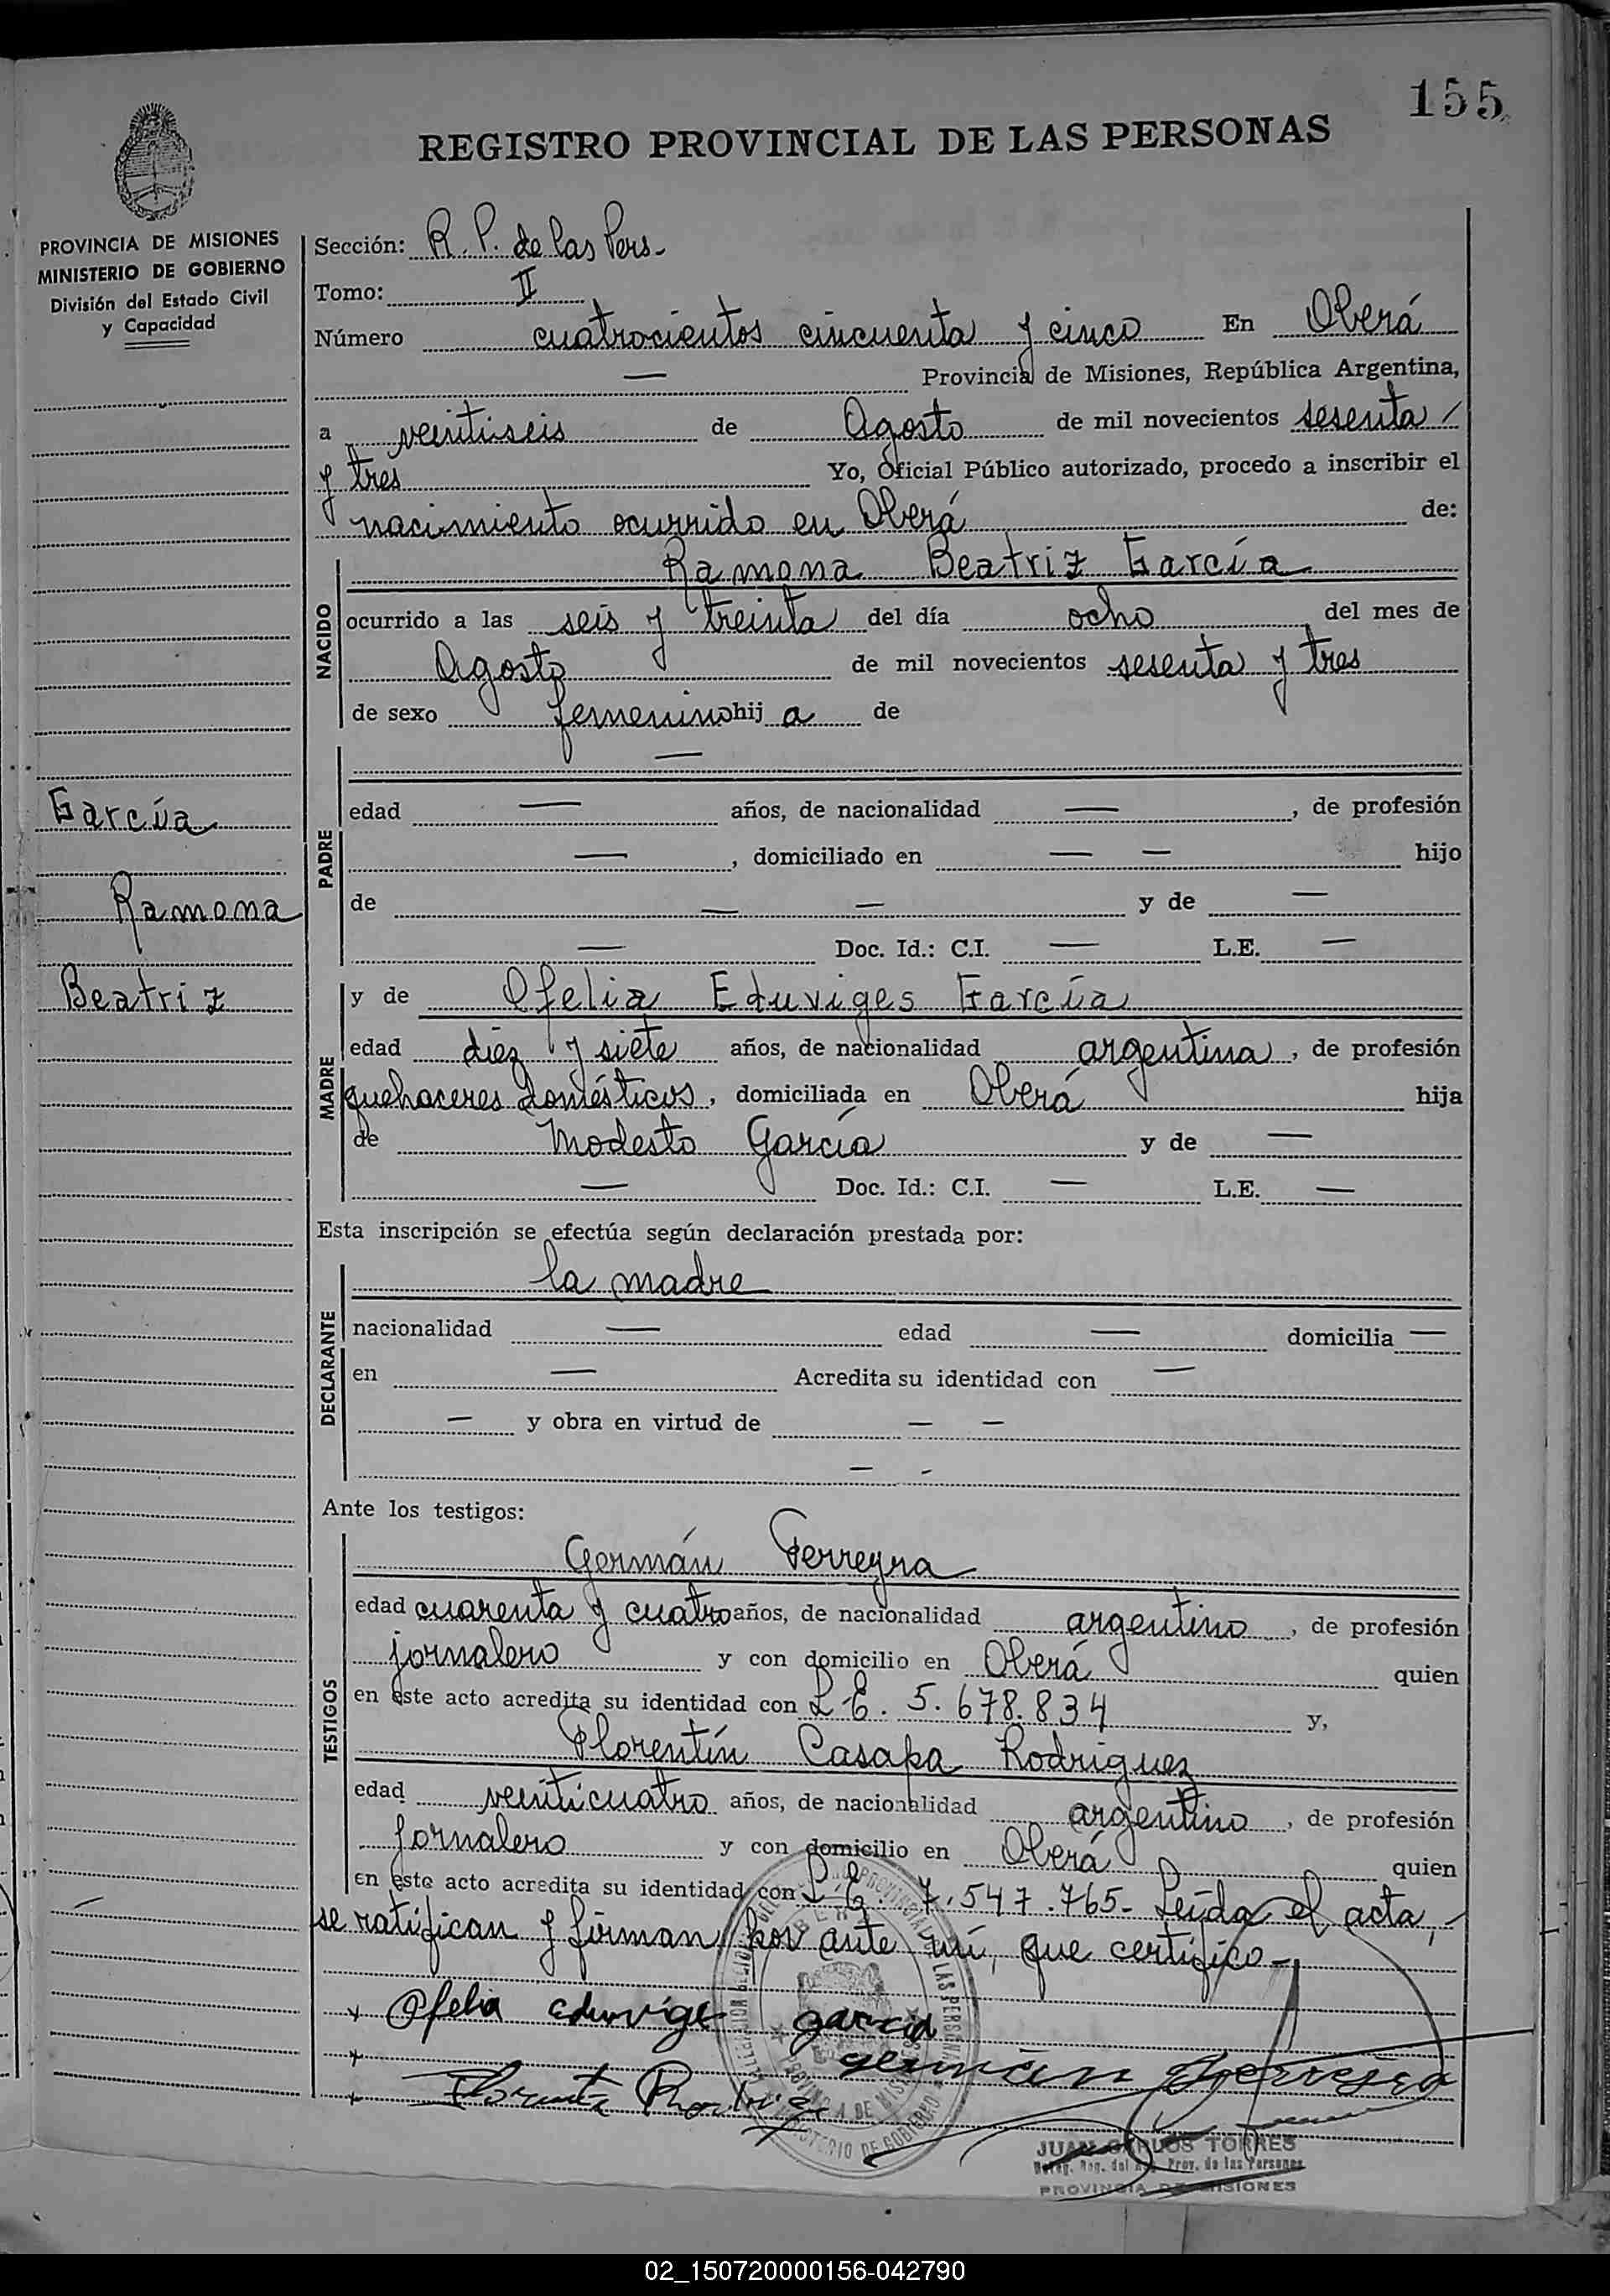 155
REGISTRO PROVINCIAL DE LAS PERSONAS
PROVINCIA DE MISIONES
MINISTERIO DE GOBIERNO
División del Estado Civil
y Capacidad
García
Ramona
Beatriz
Sección: R. P. de las Pers.
Tomo: II
Número cuatrocientos cincuenta y cinco En Oberá
— Provincia de Misiones, República Argentina,
a veintiseis de Agosto de mil novecientos sesenta /
y tres Yo, Oficial Público autorizado, procedo a inscribir el
nacimiento ocurrido en Oberá de:
NACIDO
Ramona Beatriz García
ocurrido a las seis y treinta del día ocho del mes de
Agosto de mil novecientos sesenta y tres
de sexo femenino hij a de
PADRE
—
edad — años, de nacionalidad —, de profesión
—, domiciliado en — — hijo
de — — y de —
— Doc. Id.: C.I. — L.E. —
MADRE
y de Ofelia Eduviges García
edad diez y siete años, de nacionalidad argentina, de profesión
quehaceres domésticos, domiciliada en Oberá hija
de Modesto García y de —
— Doc. Id.: C.I. — L.E. —
Esta inscripción se efectúa según declaración prestada por:
DECLARANTE
la madre
nacionalidad — edad — domicilia —
en — Acredita su identidad con —
— y obra en virtud de — —
— -
Ante los testigos:
TESTIGOS
Germán Ferreyra
edad cuarenta y cuatro años, de nacionalidad argentino, de profesión
jornalero y con domicilio en Oberá quien
en este acto acredita su identidad con L.E. 5.678.834 y,
Florentín Casapa Rodriguez
edad veinticuatro años, de nacionalidad argentino, de profesión
jornalero y con domicilio en Oberá quien
en este acto acredita su identidad con L.E. 7.547.765- Leída el acta,-
se ratifican y firman por ante mí, que certifico-
x Ofelia eduvige garcia
x german Ferreira
x
JUAN CARLOS TORRES
Prov. de las Personas
PROVINCIA DE MISIONES
02_150720000156-042790